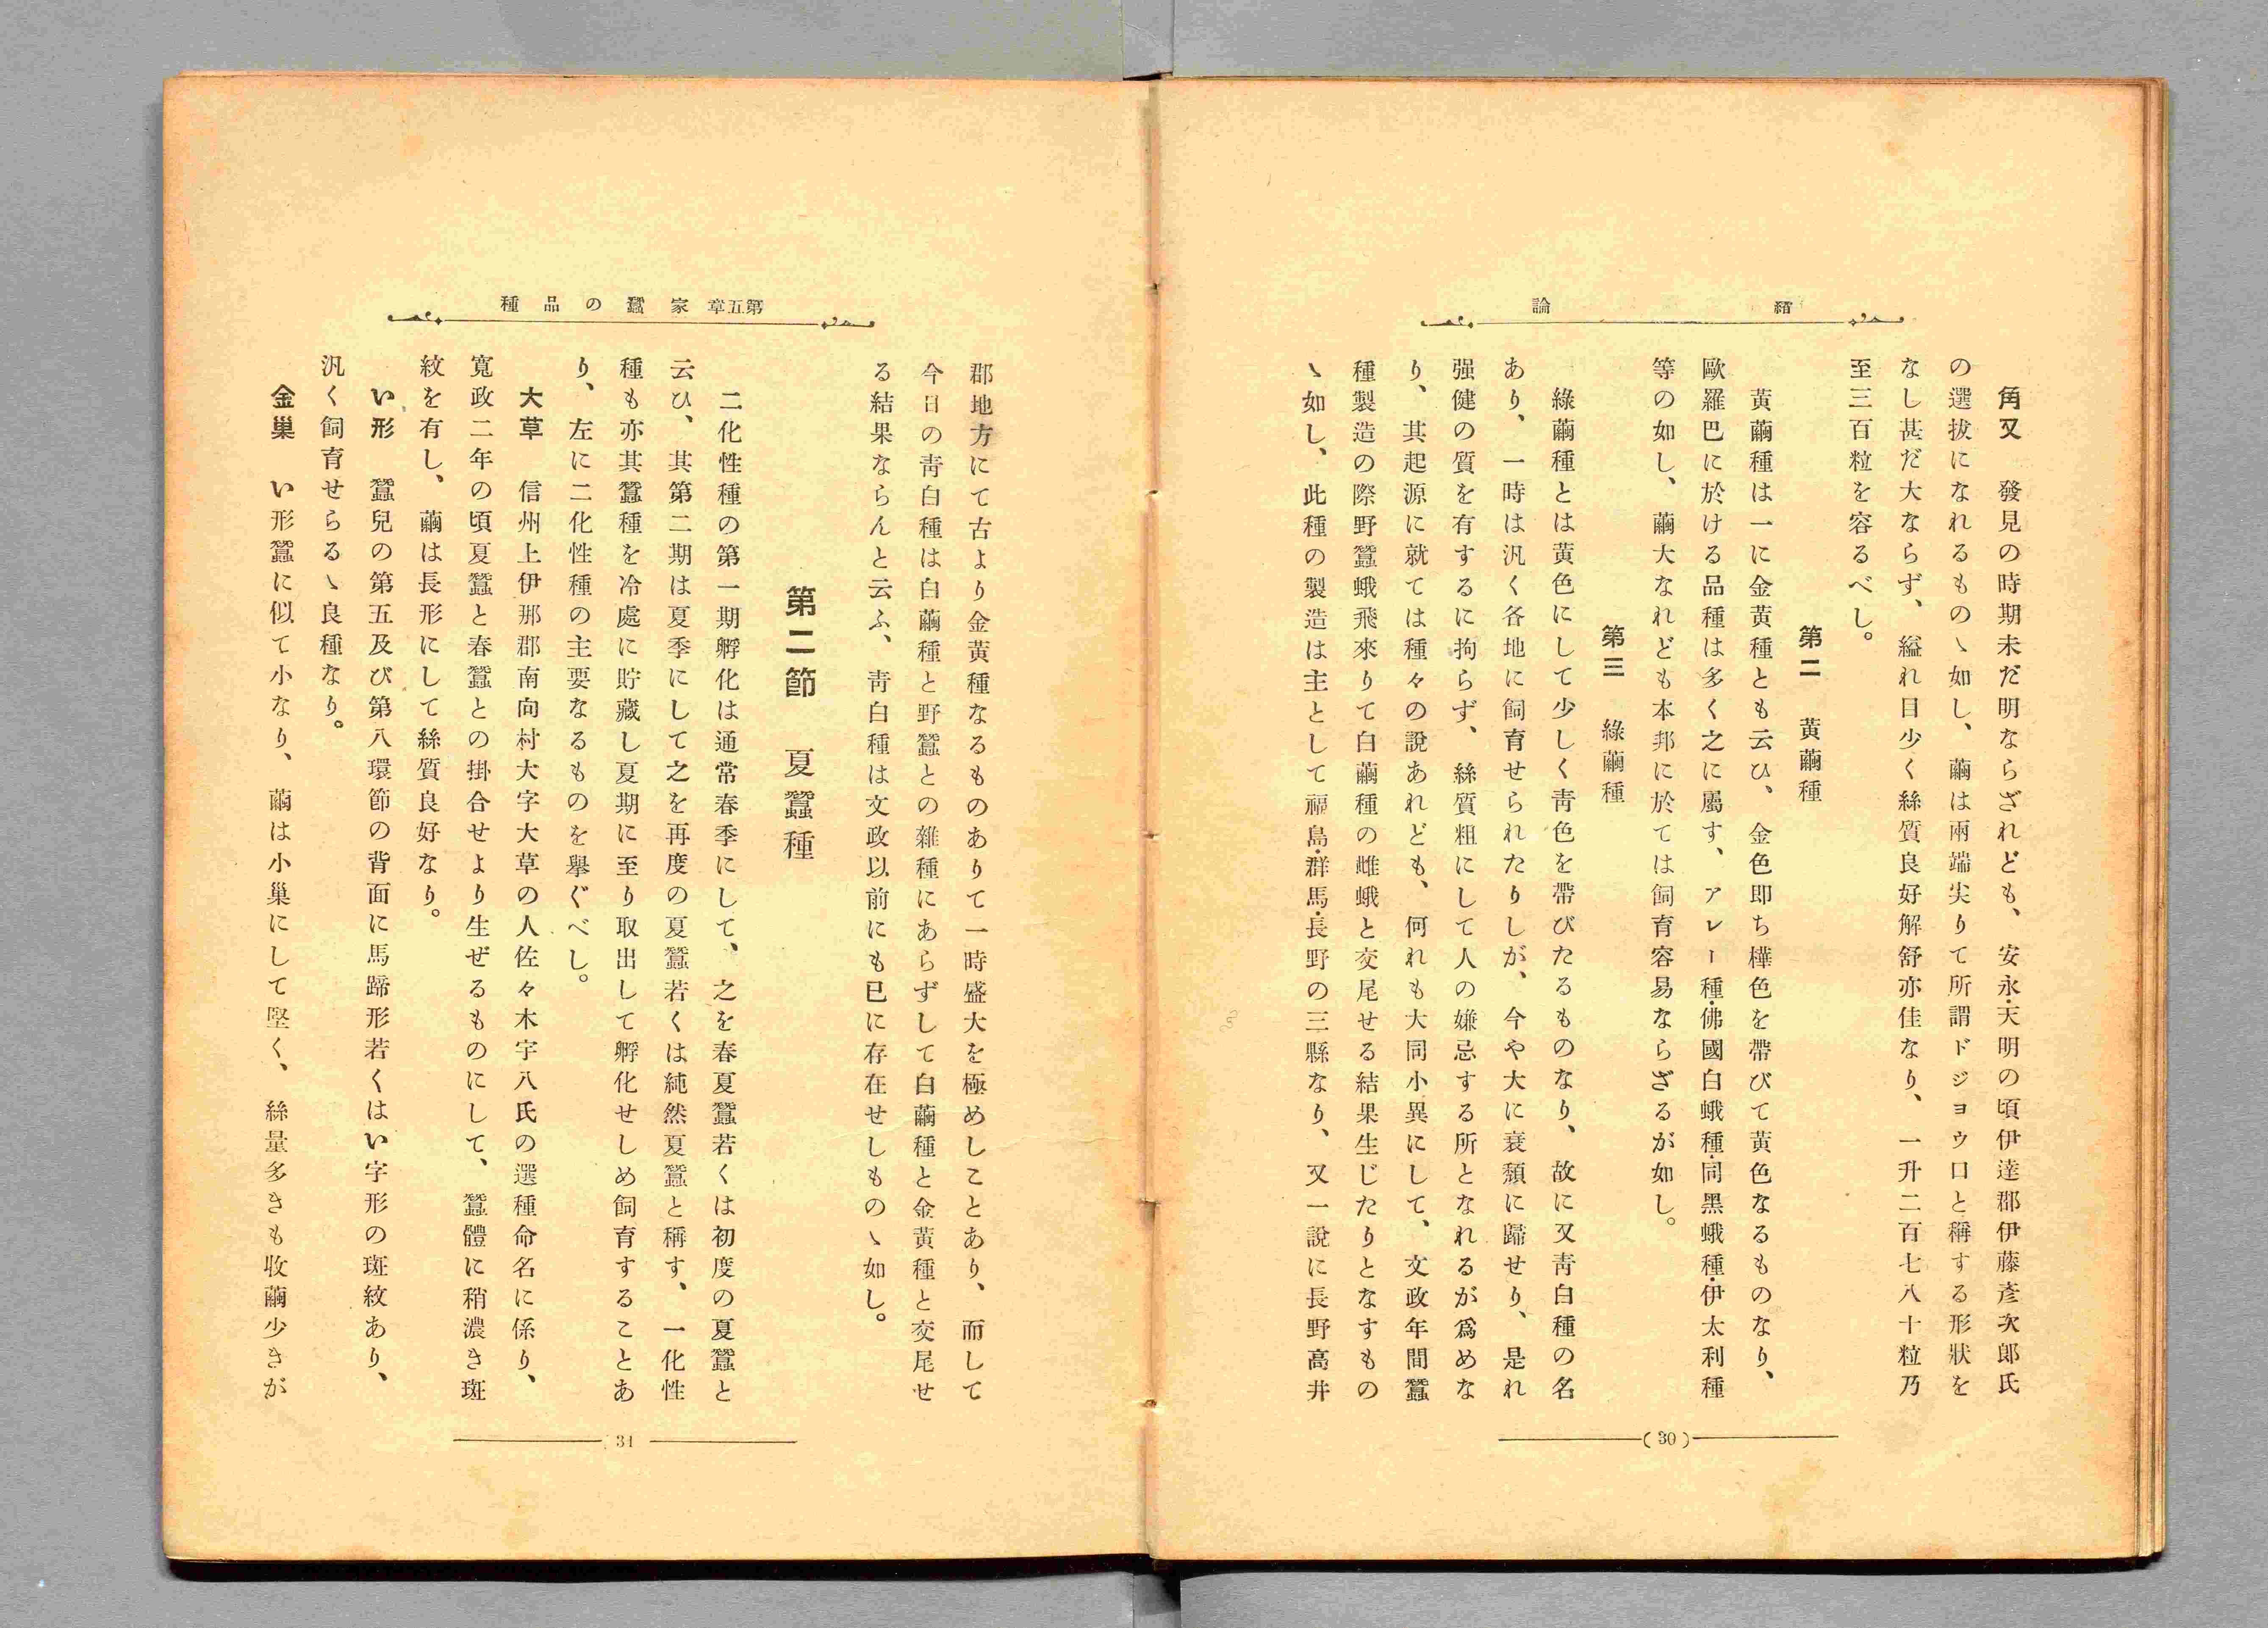 緒論
角又　發見の時期未だ明ならざれども、安永・天明の頃伊達郡伊藤彥次郎氏
の選拔になれるものヽ如し、繭は兩端尖りて所謂ドジョウ口と稱する形狀を
なし甚だ大ならず、縊れ目少く絲質良好解舒亦佳なり、一升二百七八十粒乃
至三百粒を容るべし。
第二　黃繭種
黃繭種は一に金黃種とも云ひ、金色卽ち樺色を帶びて黃色なるものなり、
歐羅巴に於ける品種は多く之に屬す、アレー種・佛國白蛾種・同黑蛾種・伊太利種
等の如し、繭大なれども本邦に於ては飼育容易ならざるが如し。
第三　綠繭種
綠繭種とは黃色にして少しく靑色を帶びたるものなり、故に又靑白種の名
あり、一時は汎く各地に飼育せられたりしが、今や大に衰頽に歸せり、是れ
强健の質を有するに拘らず、絲質粗にして人の嫌忌する所となれるが爲めな
り、其起源に就ては種々の說あれども、何れも大同小異にして、文政年間蠶
種製造の際野蠶蛾飛來りて白繭種の雌蛾と交尾せる結果生じたりとなすもの
ヽ如し、此種の製造は主として福島・群馬・長野の三縣なり、又一說に長野高井
(30)
第五章 家蠶の品種
郡地方にて古より金黃種なるものありて一時盛大を極めしことあり、而して
今日の靑白種は白繭種と野蠶との雜種にあらずして白繭種と金黃種と交尾せ
る結果ならんと云ふ、靑白種は文政以前にも已に存在せしものヽ如し。
第二節　夏蠶種
二化性種の第一期孵化は通常春季にして、之を春夏蠶若くは初度の夏蠶と
云ひ、其第二期は夏季にして之を再度の夏蠶若くは純然夏蠶と稱す、一化性
種も亦其蠶種を冷處に貯藏し夏期に至り取出して孵化せしめ飼育することあ
り、左に二化性種の主要なるものを擧ぐべし。
大草　信州上伊那郡南向村大字大草の人佐々木宇八氏の選種命名に係り、
寬政二年の頃夏蠶と春蠶との掛合せより生ぜるものにして、蠶體に稍濃き斑
紋を有し、繭は長形にして絲質良好なり。
い形　蠶兒の第五及び第八環節の背面に馬蹄形若くはい字形の斑紋あり、
汎く飼育せらるヽ良種なり。
金巢　い形蠶に似て小なり、繭は小巢にして堅く、絲量多きも收繭少きが
31